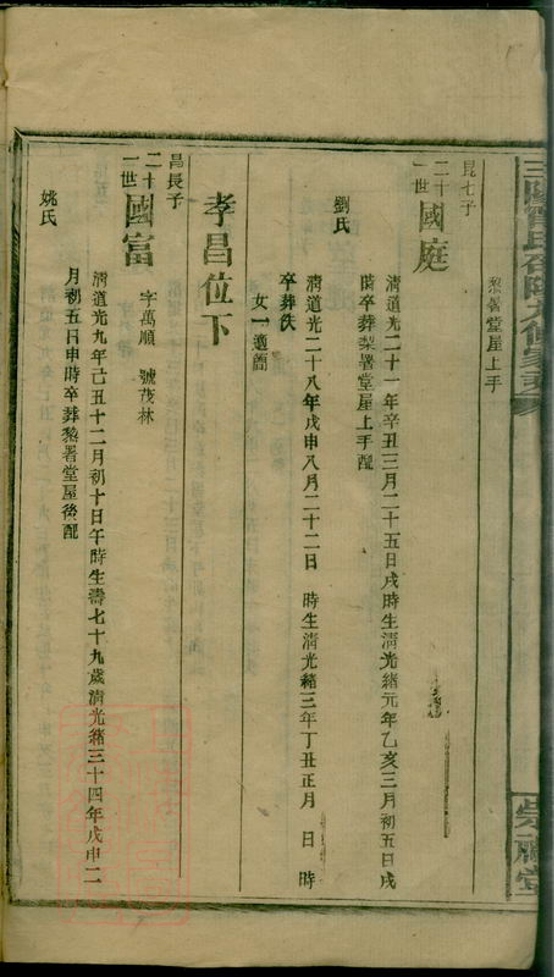 黎署堂屋上手
昆七子
二十一世
國庭
清道光二十一年辛丑三月二十五日戌時生清光緒元年乙亥三月初五日戌
時卒葬梨署堂屋上手配
劉氏
清道光二十八年戊申八月二十二日 時生清光緒三年丁丑正月 日 時
卒葬失
女一適簡
孝昌位下
昌長子
二十一世
國富 字萬順 號茂林
清道光九年己丑十二月初十日午時生壽七十九歲清光緒三十四年戊申二
月初五日申時卒葬黎署堂屋後配
姚氏